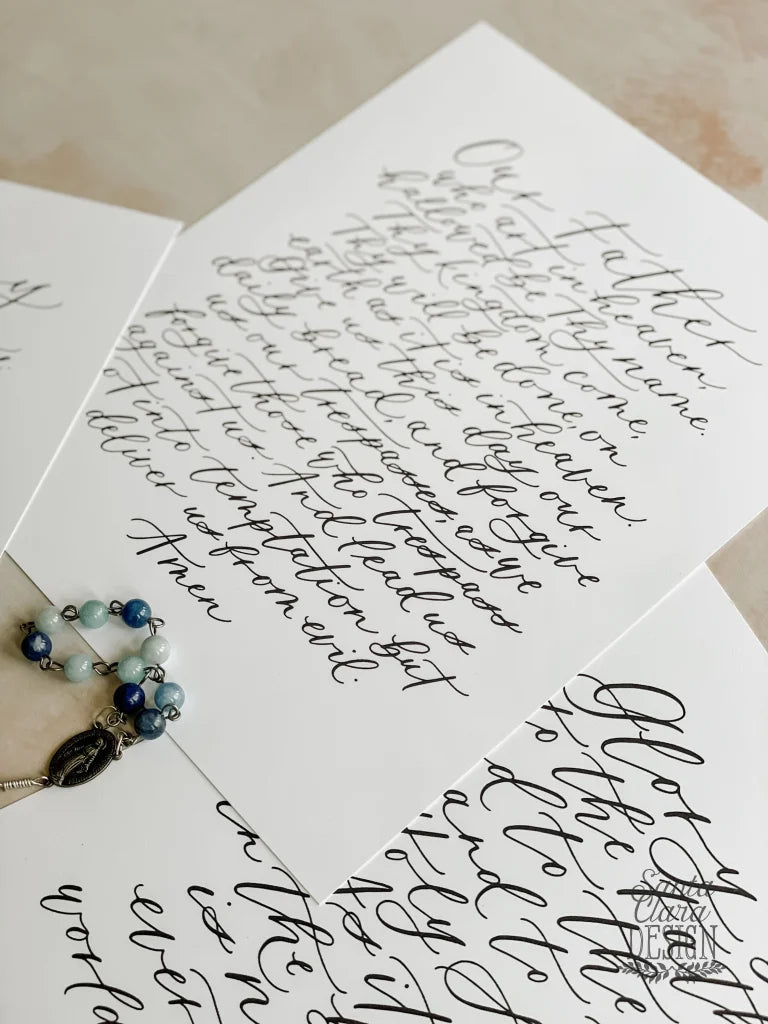 Our Father
who art in heaven.
hallowed be Thy name.
Thy kingdom come,
Thy will be done, on
earth as it is in heaven.
Give us this day our
daily bread, and forgive
us our trespasses, as we
forgive those who trespass
against us. And lead us
not into temptation but
deliver us from evil.
Amen
Glory
to the
d to the
and to
Holy
As it
in the
is n
ever
world
Santa
Clara
DESIGN